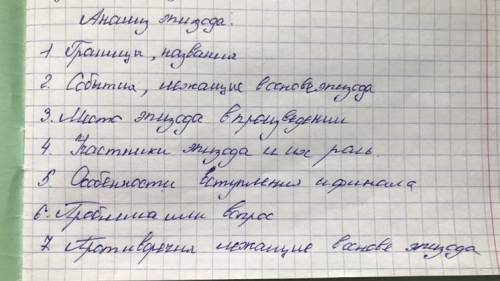 Анализ эпизода:
1 Границы, названия
2. События, лежащие в основе эпизода
3. Место эпизода в произведении
4. Участники эпизода и их роль
5. Особенности вступления и финала
6. Проблема или вопрос
7. Противоречия лежащие в основе эпизода